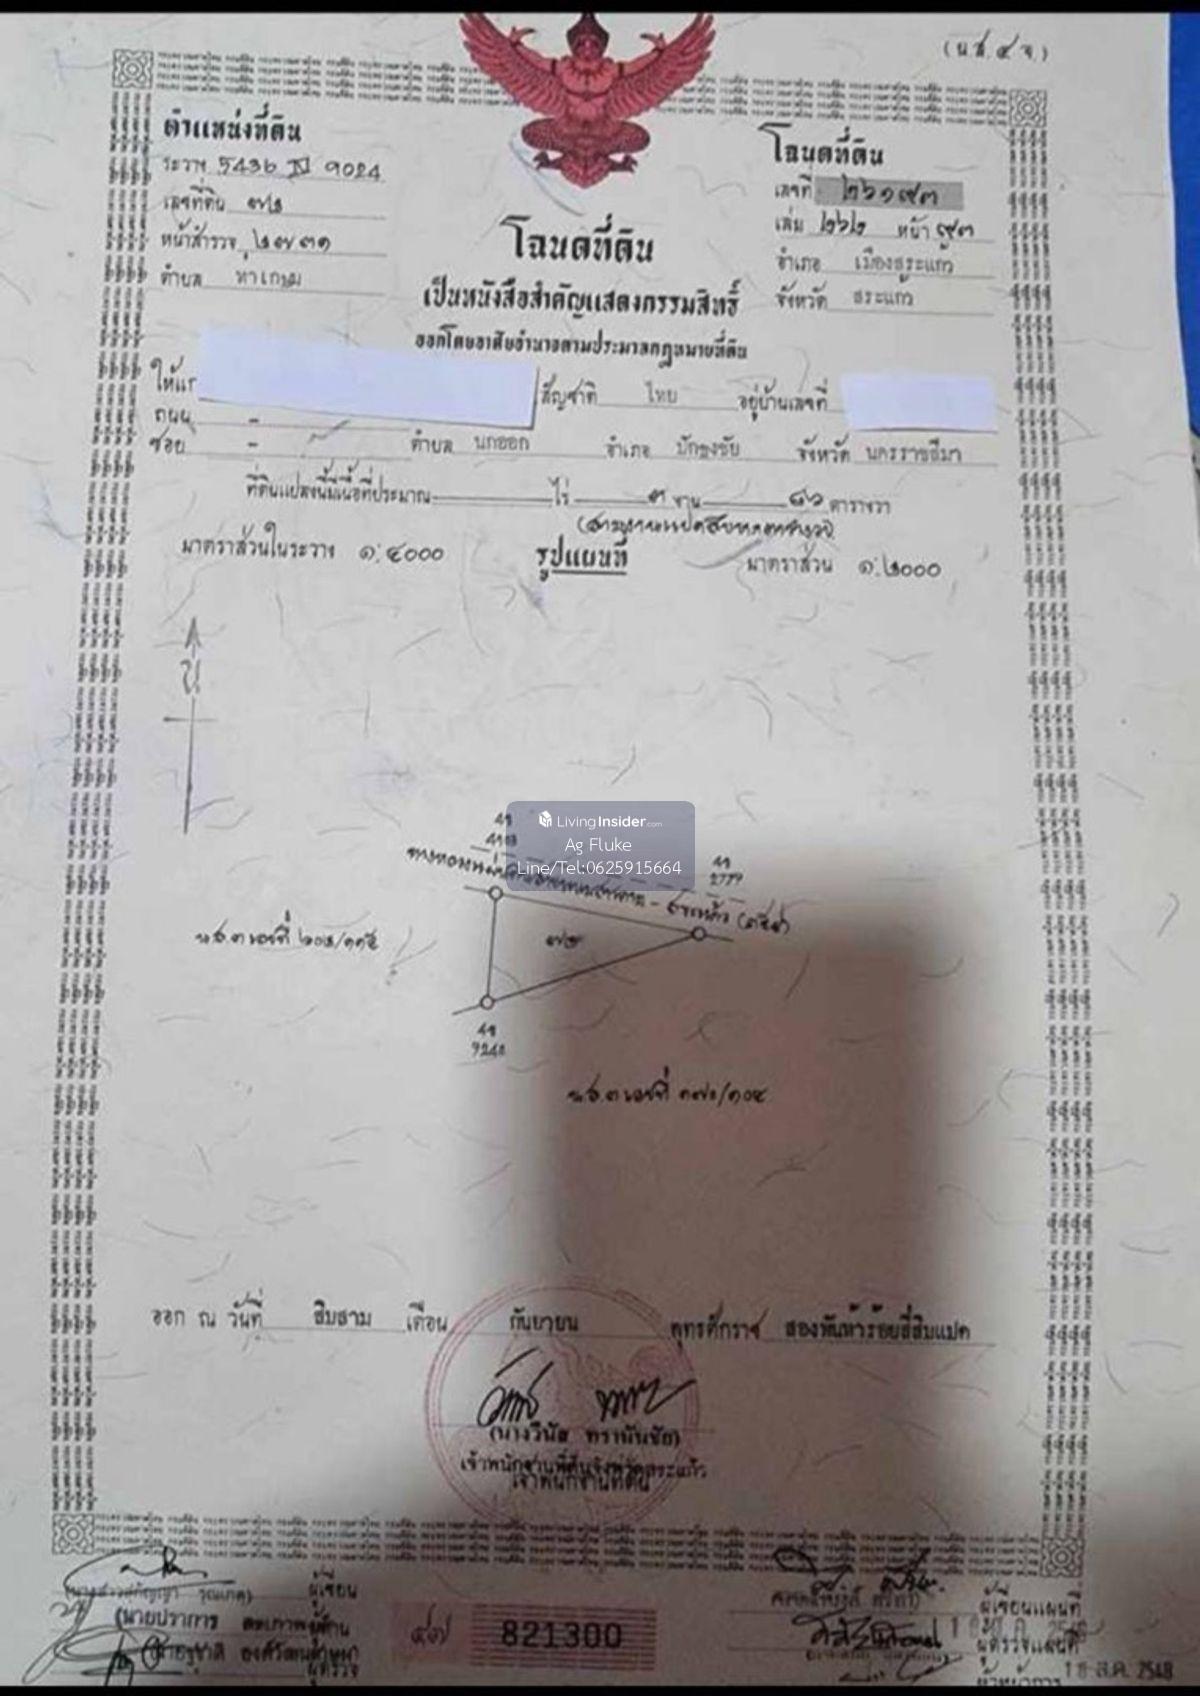 (น.ส. ๔ จ.)
ตำแหน่งที่ดิน
ระวาง 5436 IV 9024
เลขที่ดิน ๗๒
หน้าสำรวจ ๒๗๓๑
ตำบล ท่าเกษม
โฉนดที่ดิน
เลขที่ ๒๖๑๙๓
เล่ม ๒๖๒ หน้า ๙๓
อำเภอ เมืองสระแก้ว
จังหวัด สระแก้ว
โฉนดที่ดิน
เป็นหนังสือสำคัญแสดงกรรมสิทธิ์
ออกโดยอาศัยอำนาจตามประมวลกฎหมายที่ดิน
ให้แก่ สัญชาติ ไทย อยู่บ้านเลขที่
ถนน -
ซอย - ตำบล นกออก อำเภอ ปักธงชัย จังหวัด นครราชสีมา
ที่ดินแปลงนี้มีเนื้อที่ประมาณ ไร่ ๓ งาน ๘๖ ตารางวา
(สามงานแปดสิบหกตารางวา)
มาตราส่วนในระวาง ๑:๔๐๐๐ รูปแผนที่ มาตราส่วน ๑:๒๐๐๐
น
LivingInsider.com
Ag Fluke
Line/Tel:0625915664
ทางหลวงแผ่นดิน - สระแก้ว
น.ส.๓ เลขที่
๗๒
น.ส.๓ เลขที่ ๑๗๐/๑๐๔
ออก ณ วันที่ สิบสาม เดือน กันยายน พุทธศักราช สองพันห้าร้อยสี่สิบแปด
(นางวีนัส ทรานันชัย)
เจ้าพนักงานที่ดินจังหวัดสระแก้ว
เจ้าพนักงานที่ดิน
ผู้เขียน
(นายปราการ ผู้ทาน
ผู้ตรวจ
๔๗ 821300
ผู้เขียนแผนที่
ผู้ตรวจแผนที่
1 8 ส.ค. 2548